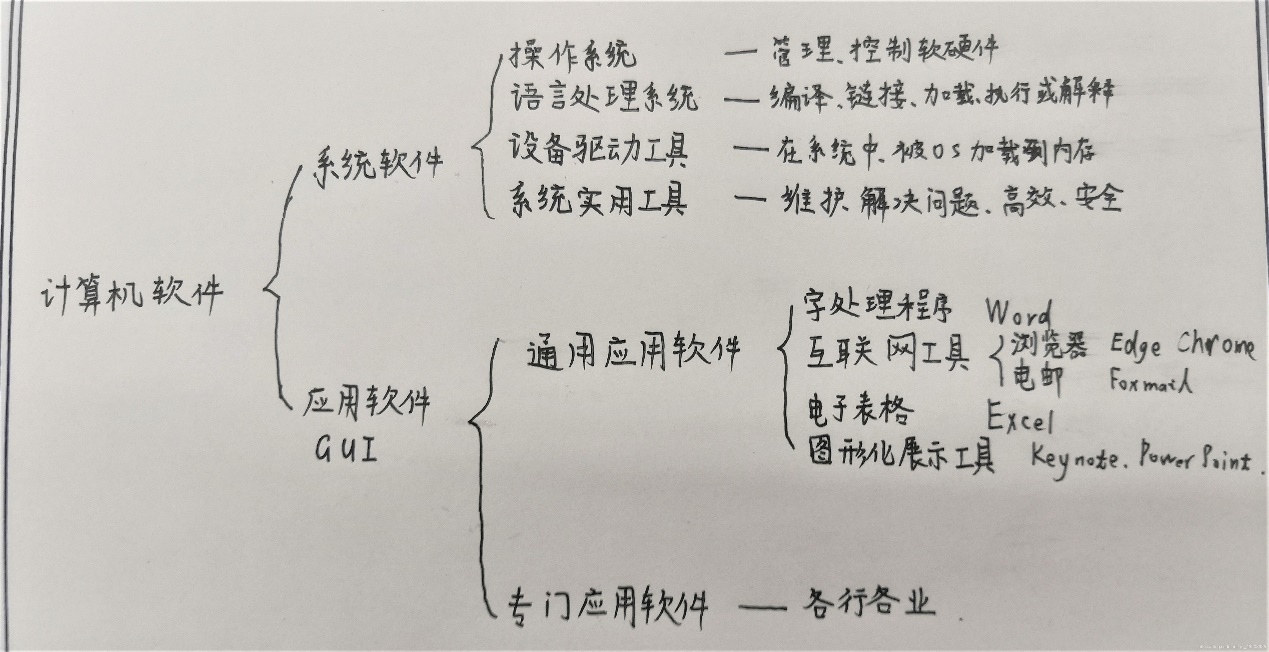 操作系统 — 管理、控制软硬件
语言处理系统 — 编译、链接、加载、执行或解释
设备驱动工具 — 在系统中、被OS加载到内存
系统实用工具 — 维护、解决问题、高效、安全
系统软件
计算机软件
应用软件
GUI
通用应用软件
字处理程序 Word
互联网工具 浏览器 Edge Chrome
电邮 Foxmail
电子表格 Excel
图形化展示工具 Keynote、PowerPoint.
专门应用软件 — 各行各业